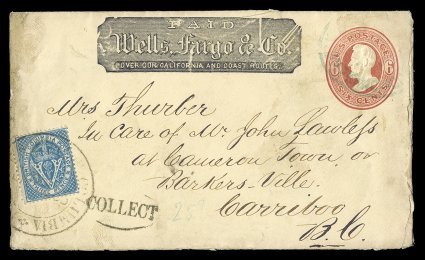 PAID
Wells, Fargo & Co.
OVER OUR CALIFORNIA AND COAST ROUTES.
U.S. POSTAGE
6 6
SIX CENTS
Mrs Thurber
In Care of Mr John Lawless
at Cameron Town, or
Barkers-Ville.
Carriboo
B.C.
COLLECT
25